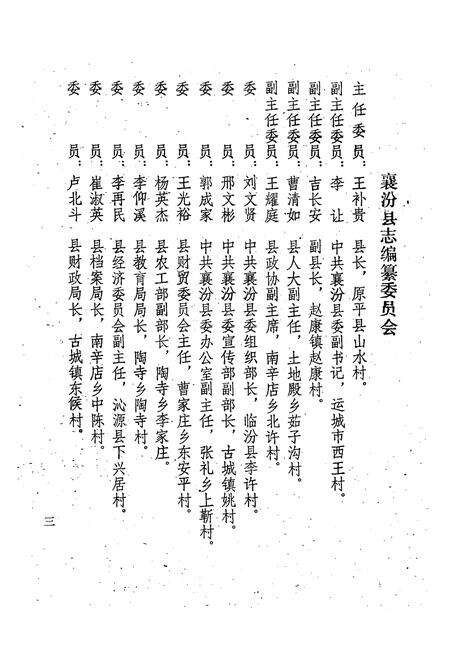 襄汾县志编纂委员会
主任委员：王补贵 县长，原平县山水村。
副主任委员：李 让 中共襄汾县委副书记，运城市西王村。
副主任委员：吉长安 副县长，赵康镇赵康村。
副主任委员：曹清如 县人大副主任，土地殿乡茹子沟村。
副主任委员：王耀庭 县政协副主席，南辛店乡北许村。
委 员：刘文贤 中共襄汾县委组织部长，临汾县李许村。
委 员：邢文彬 中共襄汾县委宣传部副部长，古城镇姚村。
委 员：郭成家 中共襄汾县委办公室副主任，张礼乡上靳村。
委 员：王光裕 县财贸委员会主任，曹家庄乡东安平村。
委 员：杨英杰 县农工部副部长，陶寺乡李家庄。
委 员：李仰溪 县教育局局长，陶寺乡陶寺村。
委 员：李再民 县经济委员会副主任，沁源县下兴居村。
委 员：崔淑英 县档案局长，南辛店乡中陈村。
委 员：卢北斗 县财政局长，古城镇东侯村。
三